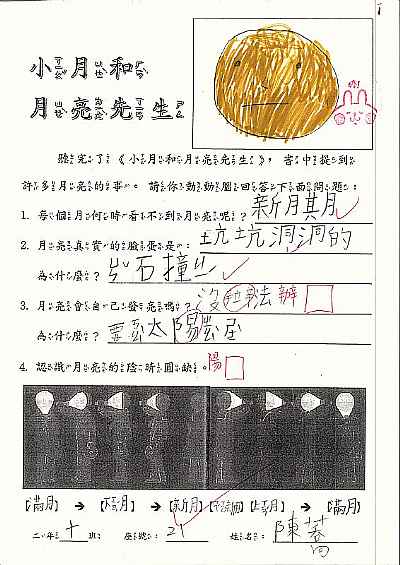 小月和
月亮先生
聽完了《小月和月亮先生》，書中提到
許多月亮的事。請你動動腦回答下面問題：
1. 每個月何時看不到月亮呢？新月其月
2. 月亮真實的臉蛋是：坑坑洞洞的
為什麼？ 石撞
3. 月亮會自己發亮嗎？沒 法 辦
為什麼？ 太陽
4. 認識月亮的陰晴圓缺。陽
【滿月】→【下弓月】→【新月】 【上弓月】→【滿月】
二年十班： 座號：21 姓名：陳